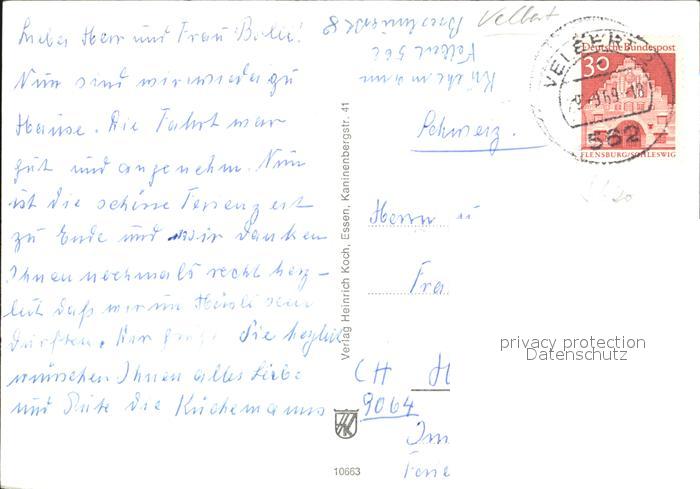 Lieber Herr und Frau
Nun sind wir wieder zu
Hause. Die Fahrt war
gut und angenehm. Nun
ist die schöne Ferienzeit
zu Ende und wir danken
Ihnen nochmals recht herz-
lich daß wir im Häusli sein
durften. Wir Sie herzlich
wünschen Ihnen alles Liebe
und Gute die Küchemanns
Verlag Heinrich Koch, Essen, Kaninenbergstr. 41
10663
Küchemann
562
Velbert
Deutsche Bundespost
30
FLENSBURG/SCHLESWIG
VELBERT
9.69-18
562
Schweiz.
Herrn u
Fra
CH H
9064
Im
privacy protection
Datenschutz